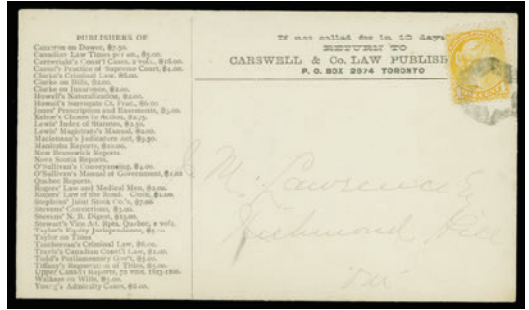 PUBLISHERS OF
Cameron on Dower, $7.50.
Canadian Law Times per an., $5.00.
Cartwright's Const'l Cases, 2 vols., $16.00.
Cassel's Practice of Supreme Court, $4.00.
Clarke's Criminal Law, $6.00.
Clarke on Bills, $2.00.
Clarke on Insurance, $2.00.
Howell's Naturalization, $2.00.
Howell's Surrogate Ct. Prac., $6.00
Jones' Prescription and Easements, $5.00.
Kehoe's Choses in Action, $2.75.
Lewis' Index of Statutes, $2.50.
Lewis' Magistrate's Manual, $2.00.
Maclennan's Judicature Act, $9.50.
Manitoba Reports, $10.00.
New Brunswick Reports.
Nova Scotia Reports.
O'Sullivan's Conveyancing, $4.00.
O'Sullivan's Manual of Government, $1.00
Quebec Reports.
Rogers' Law and Medical Men, $2.00.
Rogers' Law of the Road. Cloth, $1.00.
Stephens' Joint Stock Co.'s, $7.00
Stevens' Convictions, $3.00.
Stevens' N. B. Digest, $13.00.
Stewart's Vice Ad. Rpts. Quebec, 2 vols.
Taylor's Equity Jurisprudence,
Taylor on Titles
Taschereau's Criminal Law, $6.00.
Travis's Canadian Const'l Law, $2.00.
Todd's Parliamentary Gov't, $5.00.
Tiffany's Registration of Titles, $5.00.
Upper Canada Reports, 70 vols. 1823-1866.
Wallace on Wills, $5.00.
Young's Admiralty Cases, $6.00.
If not called for in 10 days
RETURN TO
CARSWELL & Co. LAW PUBLISH
P. O. BOX 2974 TORONTO
M. Lawrence
Richmond
Ont